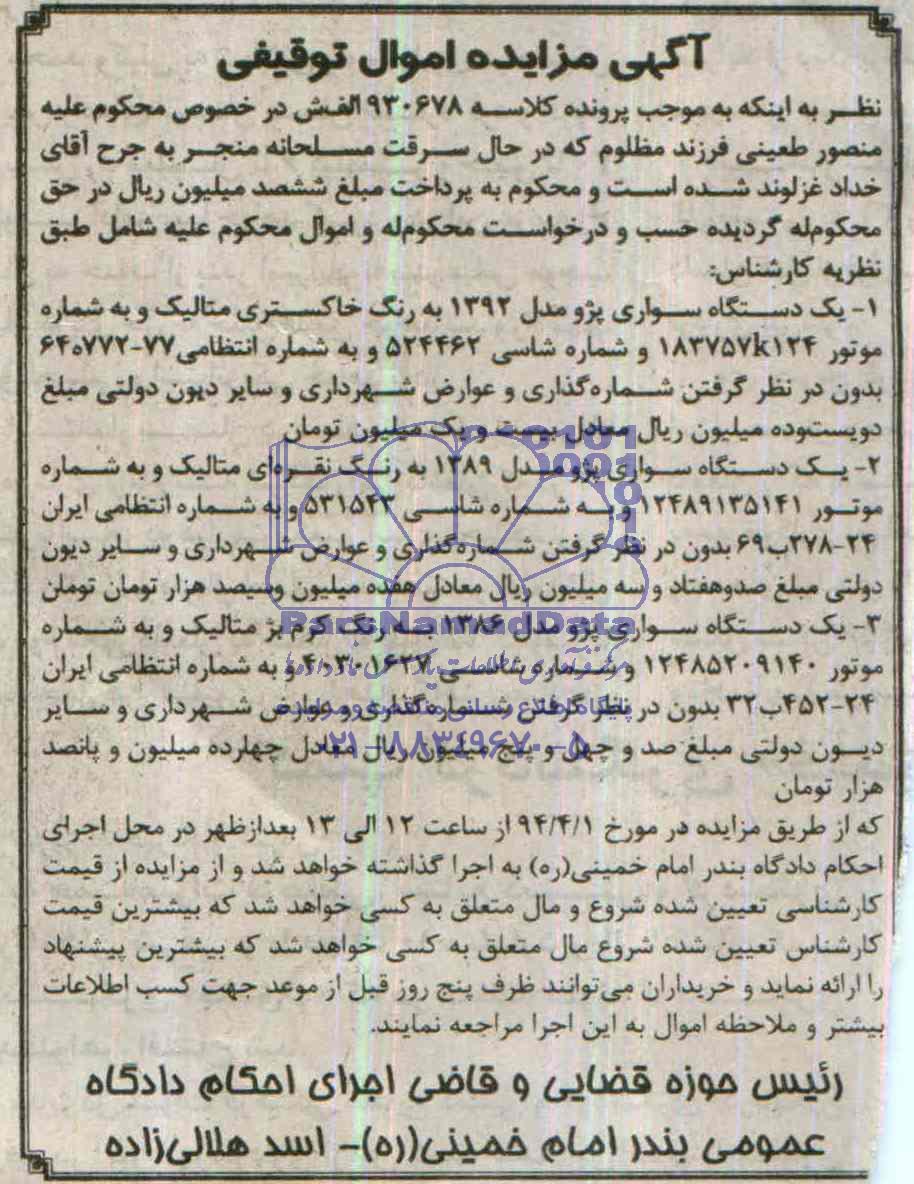 آگهی مزایده اموال توقیفی
نظر به اینکه به موجب پرونده کلاسه ۹۳۰۶۷۸ الفش در خصوص محکوم علیه
منصور طعینی فرزند مظلوم که در حال سرقت مسلحانه منجر به جرح آقای
خداد غزلوند شده است و محکوم به پرداخت مبلغ ششصد میلیون ریال در حق
محکوم‌له گردیده حسب و درخواست محکوم‌له و اموال محکوم علیه شامل طبق
نظریه کارشناس:
۱- یک دستگاه سواری پژو مدل ۱۳۹۲ به رنگ خاکستری متالیک و به شماره
موتور ۱۸۳۷۵۷k۱۲۴ و شماره شاسی ۵۲۴۴۶۲ و به شماره انتظامی
بدون در نظر گرفتن شماره‌گذاری و عوارض شهرداری و سایر دیون دولتی مبلغ
دویست‌وده میلیون ریال معادل بیست و یک میلیون تومان
۲- یک دستگاه سواری پژو مدل ۱۳۸۹ به رنگ نقره‌ای متالیک و به شماره
موتور ۱۲۴۸۹۱۳۵۱۴۱ و به شماره شاسی ۵۳۱۵۴۳ و به شماره انتظامی ایران
۲۴-۲۷۸ب۶۹ بدون در نظر گرفتن شماره‌گذاری و عوارض شهرداری و سایر دیون
دولتی مبلغ صدوهفتاد و سه میلیون ریال معادل هفده میلیون وسیصد هزار تومان تومان
۳- یک دستگاه سواری پژو مدل ۱۳۸۶ به رنگ کرم بژ متالیک و به شماره
موتور ۱۲۴۸۵۲۰۹۱۴۰ و شماره شاسی ۴۰۳۰۱۶۲۷ و به شماره انتظامی ایران
۲۴-۴۵۲ب۳۲ بدون در نظر گرفتن شماره‌گذاری و عوارض شهرداری و سایر
دیون دولتی مبلغ صد و چهل و پنج میلیون ریال معادل چهارده میلیون و پانصد
هزار تومان
که از طریق مزایده در مورخ ۹۴/۴/۱ از ساعت ۱۲ الی ۱۳ بعدازظهر در محل اجرای
احکام دادگاه بندر امام خمینی(ره) به اجرا گذاشته خواهد شد و از مزایده از قیمت
کارشناسی تعیین شده شروع و مال متعلق به کسی خواهد شد که بیشترین قیمت
کارشناس تعیین شده شروع مال متعلق به کسی خواهد شد که بیشترین پیشنهاد
را ارائه نماید و خریداران می‌توانند ظرف پنج روز قبل از موعد جهت کسب اطلاعات
بیشتر و ملاحظه اموال به این اجرا مراجعه نمایند.
رئیس حوزه قضایی و قاضی اجرای احکام دادگاه
عمومی بندر امام خمینی(ره)- اسد هلالی‌زاده
ParsNamadData
۰۲۱-۸۸۳۴۹۶۷۰-۵